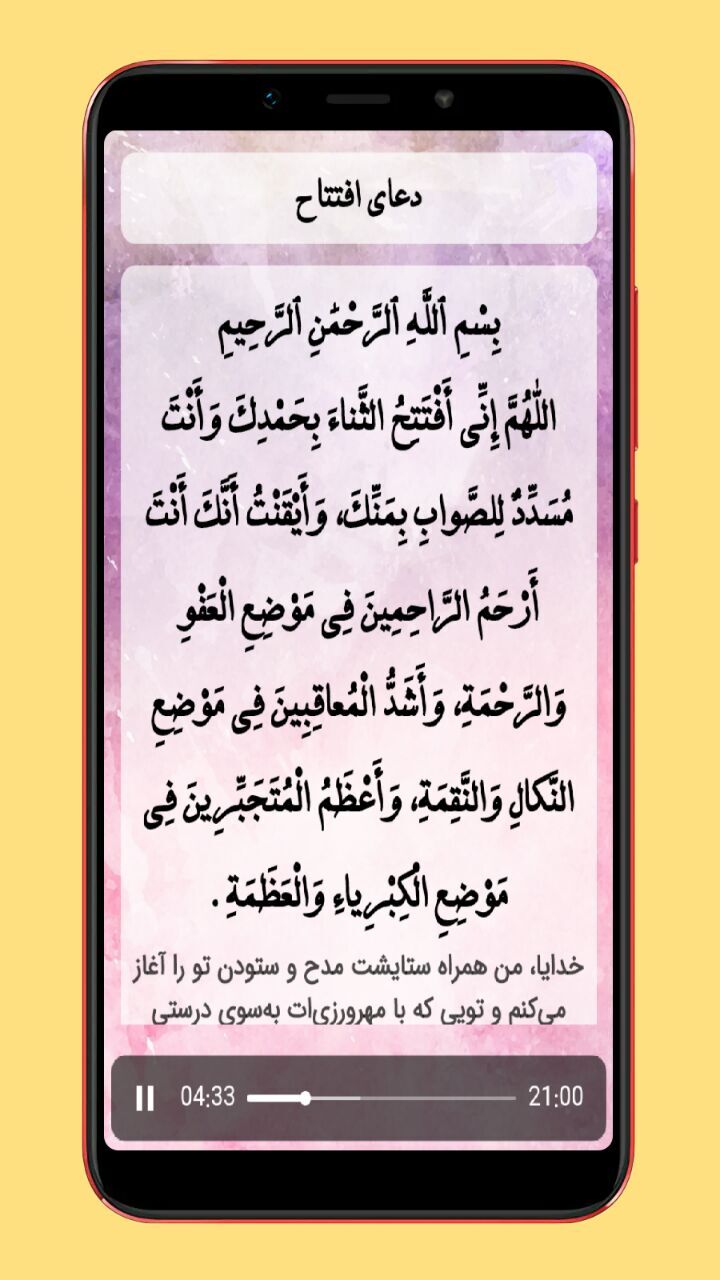 دعای افتتاح
بِسْمِ ٱللَّهِ ٱلرَّحْمَٰنِ ٱلرَّحِيمِ
اللّٰهُمَّ إِنِّى أَفْتَتِحُ الثَّناءَ بِحَمْدِكَ وَأَنْتَ
مُسَدِّدٌ لِلصَّوابِ بِمَنِّكَ، وَأَيْقَنْتُ أَنَّكَ أَنْتَ
أَرْحَمُ الرَّاحِمِينَ فِى مَوْضِعِ الْعَفْوِ
وَالرَّحْمَةِ، وَأَشَدُّ الْمُعاقِبِينَ فِى مَوْضِعِ
النَّكالِ وَالنَّقِمَةِ، وَأَعْظَمُ الْمُتَجَبِّرِينَ فِى
مَوْضِعِ الْكِبْرِياءِ وَالْعَظَمَةِ .
خدایا، من همراه ستایشت مدح و ستودن تو را آغاز
می‌کنم و تویی که با مهرورزی‌ات به‌سوی درستی
04:33 21:00